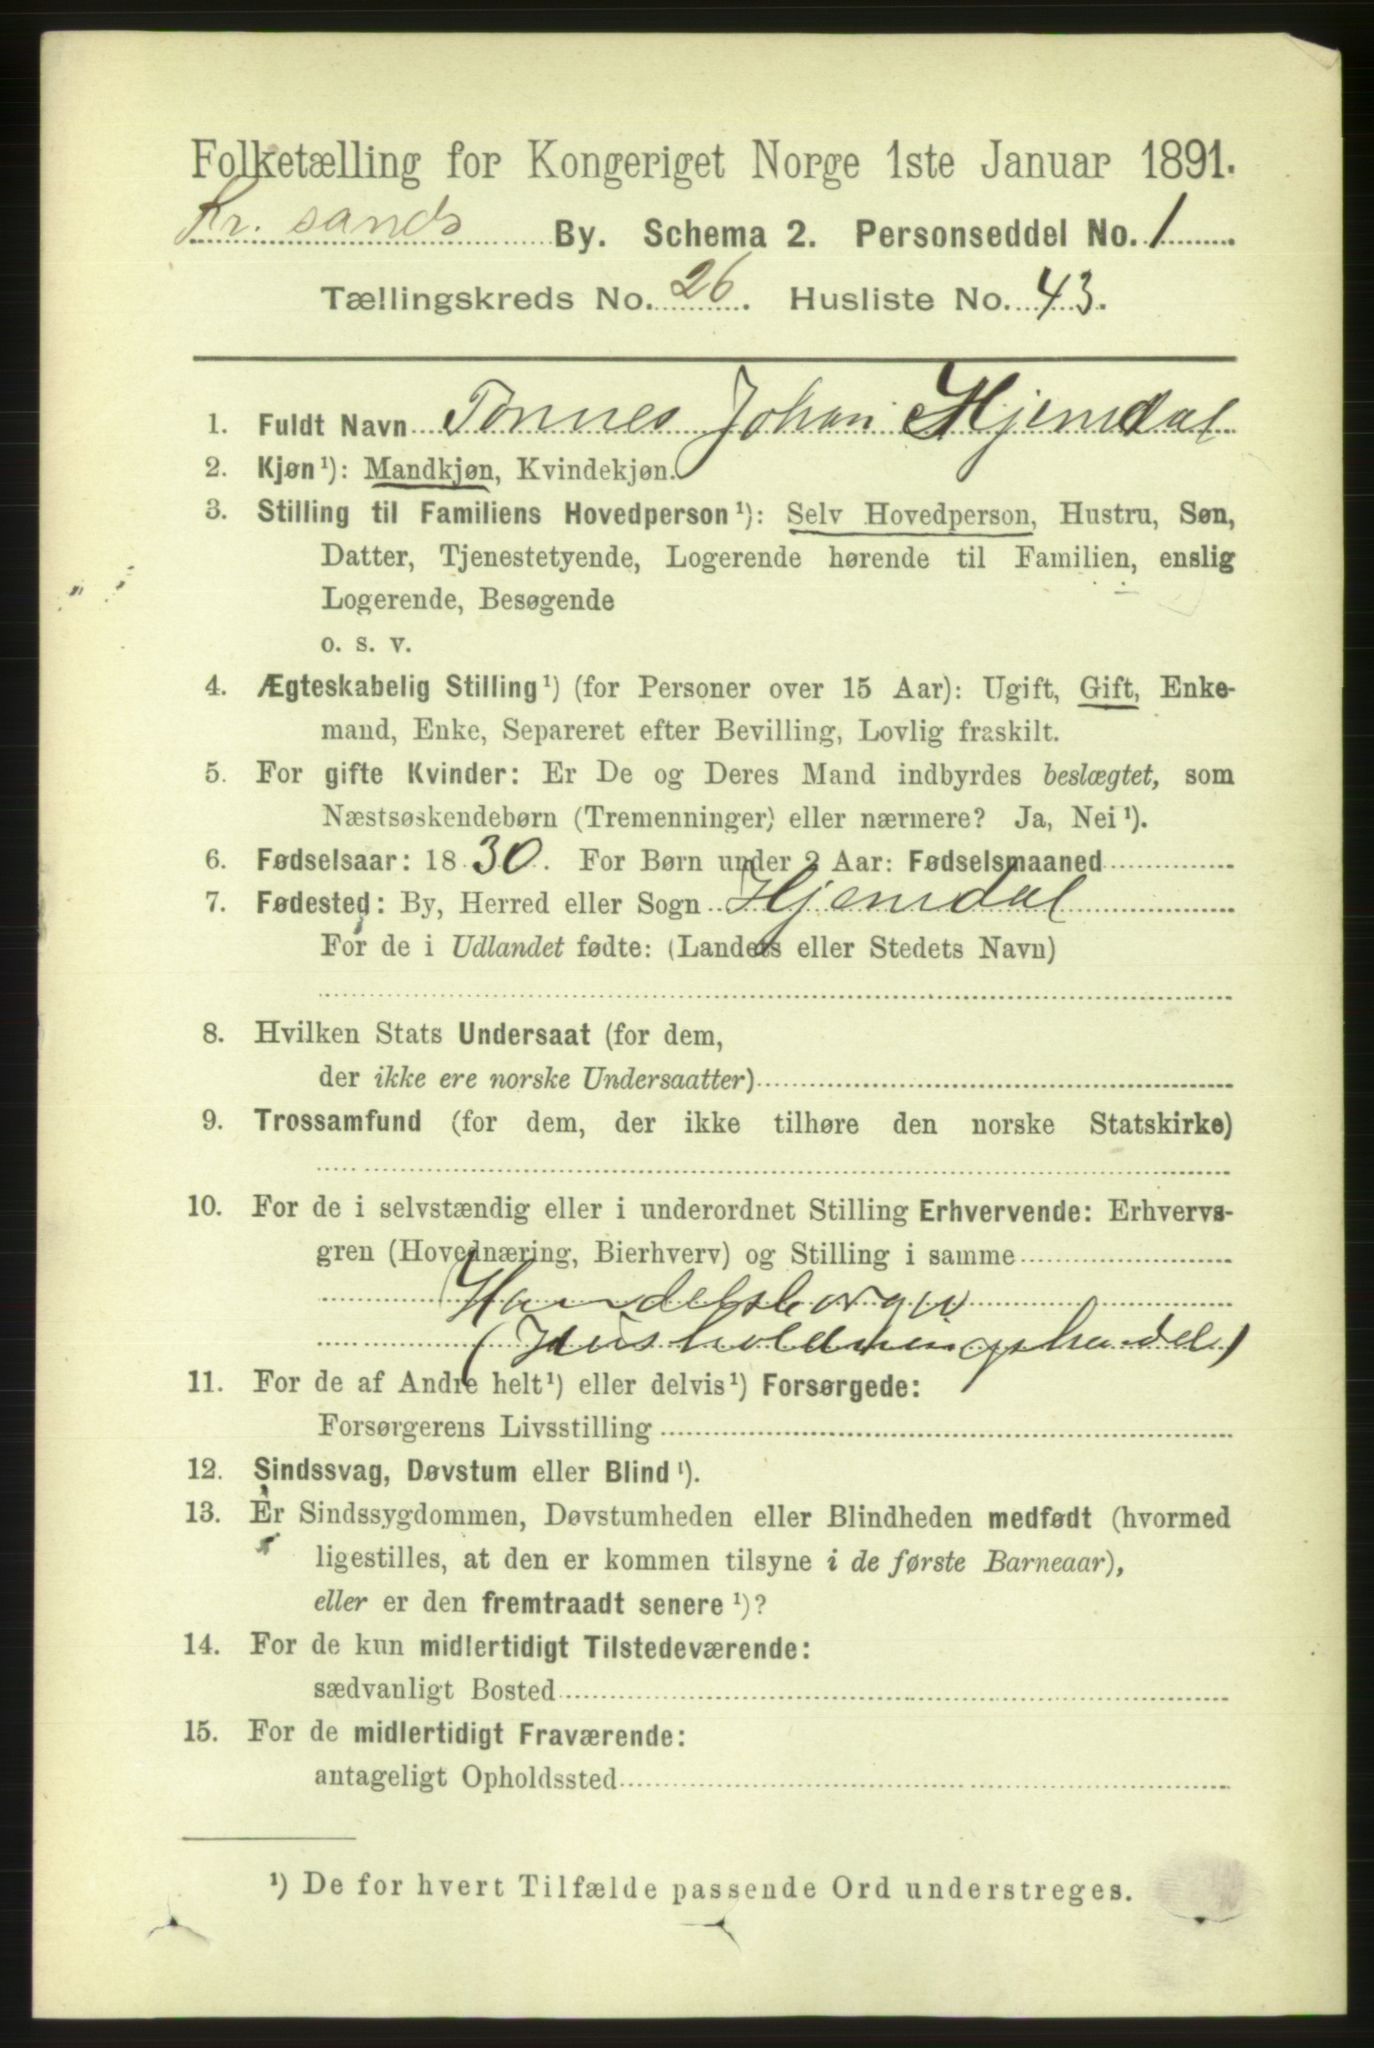 Folketælling for Kongeriget Norge 1ste Januar 1891.
Kr. sands By. Schema 2. Personseddel No. 1
Tællingskreds No. 26. Husliste No. 43.
1. Fuldt Navn Tønnes Johan Hjemdal
2. Kjøn¹): Mandkjøn, Kvindekjøn.
3. Stilling til Familiens Hovedperson¹): Selv Hovedperson, Hustru, Søn,
Datter, Tjenestetyende, Logerende hørende til Familien, enslig
Logerende, Besøgende
o. s. v.
4. Ægteskabelig Stilling¹) (for Personer over 15 Aar): Ugift, Gift, Enke-
mand, Enke, Separeret efter Bevilling, Lovlig fraskilt.
5. For gifte Kvinder: Er De og Deres Mand indbyrdes beslægtet, som
Næstsøskendebørn (Tremenninger) eller nærmere? Ja, Nei¹).
6. Fødselsaar: 1830. For Børn under 2 Aar: Fødselsmaaned
7. Fødested: By, Herred eller Sogn Hjemdal
For de i Udlandet fødte: (Landets eller Stedets Navn)
8. Hvilken Stats Undersaat (for dem,
der ikke ere norske Undersaatter)
9. Trossamfund (for dem, der ikke tilhøre den norske Statskirke)
10. For de i selvstændig eller i underordnet Stilling Erhvervende: Erhvervs-
gren (Hovednæring, Bierhverv) og Stilling i samme
Handelsborger
(Husholdningshandel)
11. For de af Andre helt¹) eller delvis¹) Forsørgede:
Forsørgerens Livsstilling
12. Sindssvag, Døvstum eller Blind¹).
13. Er Sindssygdommen, Døvstumheden eller Blindheden medfødt (hvormed
ligestilles, at den er kommen tilsyne i de første Barneaar),
eller er den fremtraadt senere¹)?
14. For de kun midlertidigt Tilstedeværende:
sædvanligt Bosted
15. For de midlertidigt Fraværende:
antageligt Opholdssted
¹) De for hvert Tilfælde passende Ord understreges.